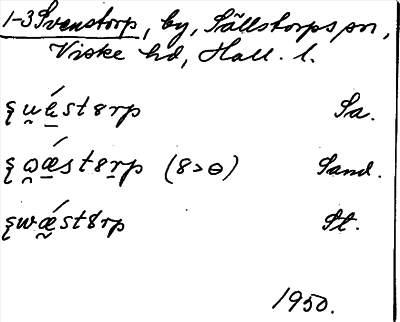 1-3 Svenstorp, by, Sällstorps sn,
Viske hd, Hall. l.
ȿu̯ǽst8rp Sa.
ȿω̯ǽst8rp (8>ɵ) Sand.
ȿwǽst8rp St.
1950.